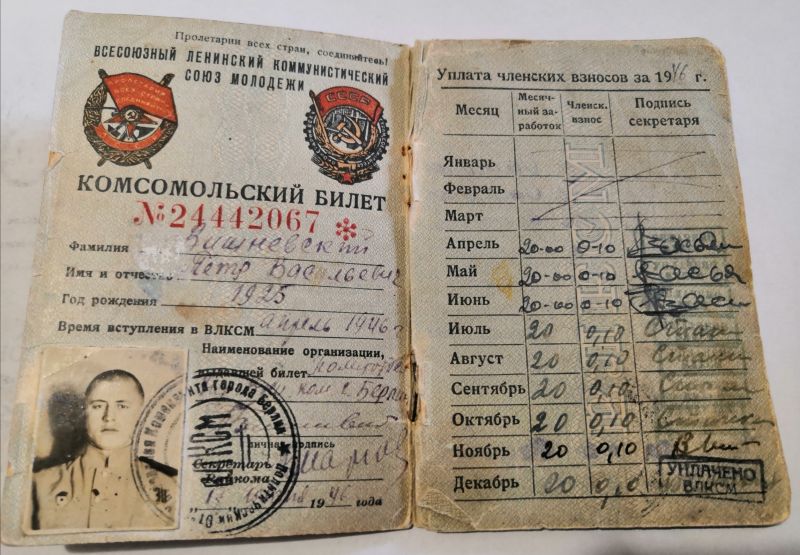 Пролетарии всех стран, соединяйтесь!
ВСЕСОЮЗНЫЙ ЛЕНИНСКИЙ КОММУНИСТИЧЕСКИЙ
СОЮЗ МОЛОДЕЖИ
СССР
КОМСОМОЛЬСКИЙ БИЛЕТ
№24442067 *
Фамилия Вишневский
Имя и отчество Петр Васильевич
Год рождения 1925
Время вступления в ВЛКСМ апрель 1946 г
Наименование организации,
выдавшей билет
ком г. Берлин
личная подпись
Секретарь
Райкома
1946 года
города Берлин
Уплата членских взносов за 1946 г.
Месяц Месяч-ный за-работок Членск. взнос Подпись секретаря
Январь
Февраль
Март
Апрель 20-00 0-10
Май 20-00 0-10
Июнь 20-00 0-10
Июль 20 0,10
Август 20 0,10
Сентябрь 20 0,10
Октябрь 20 0,10
Ноябрь 20 0,10
Декабрь 20 0,10
УПЛАЧЕНО
ВЛКСМ